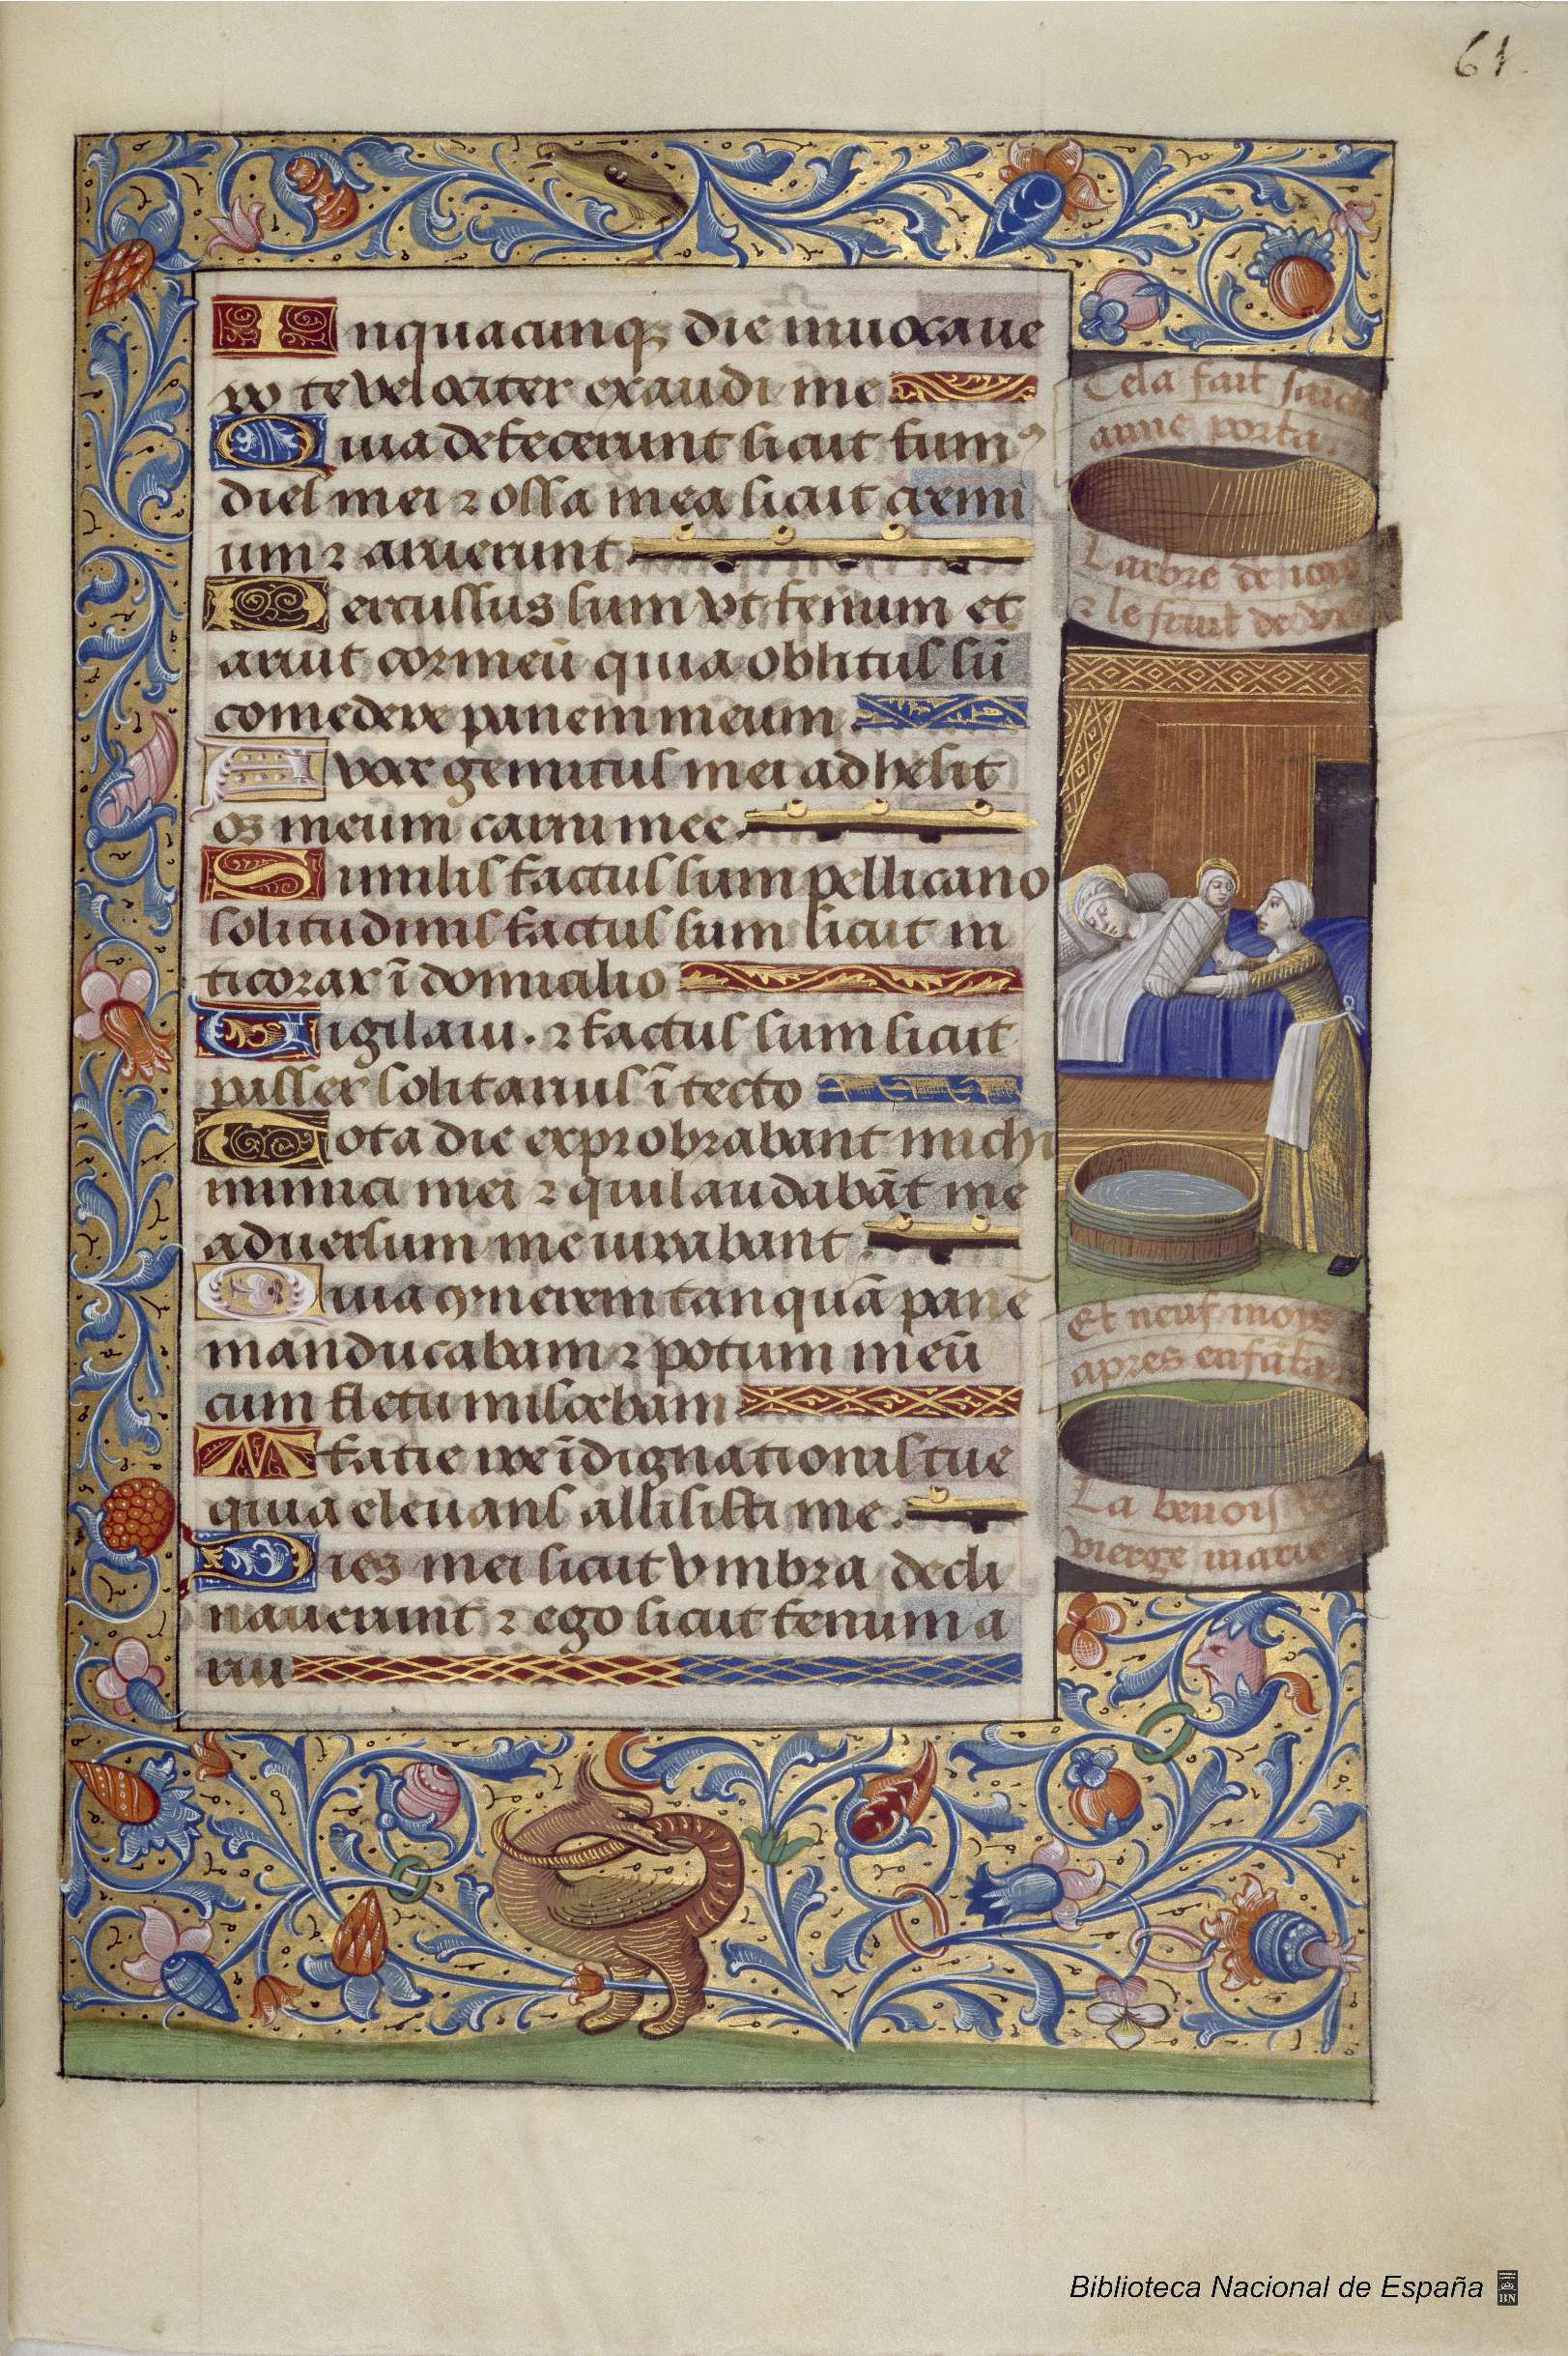 61.
Inquacunqꝫ die inuocaue
ro te velociter exaudi me
Quia defecerunt sicut fumꝰ
dies mei ⁊ ossa mea sicut cremi
um ⁊ aruerunt
Percussus sum vt fenum et
aruit cor meū quia oblitus sū
comedere panem meum.
A voce gemitus mei adhesit
os meum carni mee.
Similis factus sum pellicano
solitudinis factus sum sicut in
ticorax ī domicilio
Vigilaui . ⁊ factus sum sicut
passer solitarius ī tecto
Tota die exprobrabant michi
inimici mei ⁊ qui laudabāt me
aduersum me iurabant.
Quia cynerem tanquā panē
manducabam ⁊ potum meū
cum fletu miscebam
A facie ire īdignationis tue
quia eleuans allisisti me.
Dies mei sicut vmbra decli
nauerunt ⁊ ego sicut fenum a
rui
Cela fait
anne porta.
Larbre de
⁊ le fruit de
Et neuf moys
apres enfāta
La benoiste
vierge marie
Biblioteca Nacional de España
BN